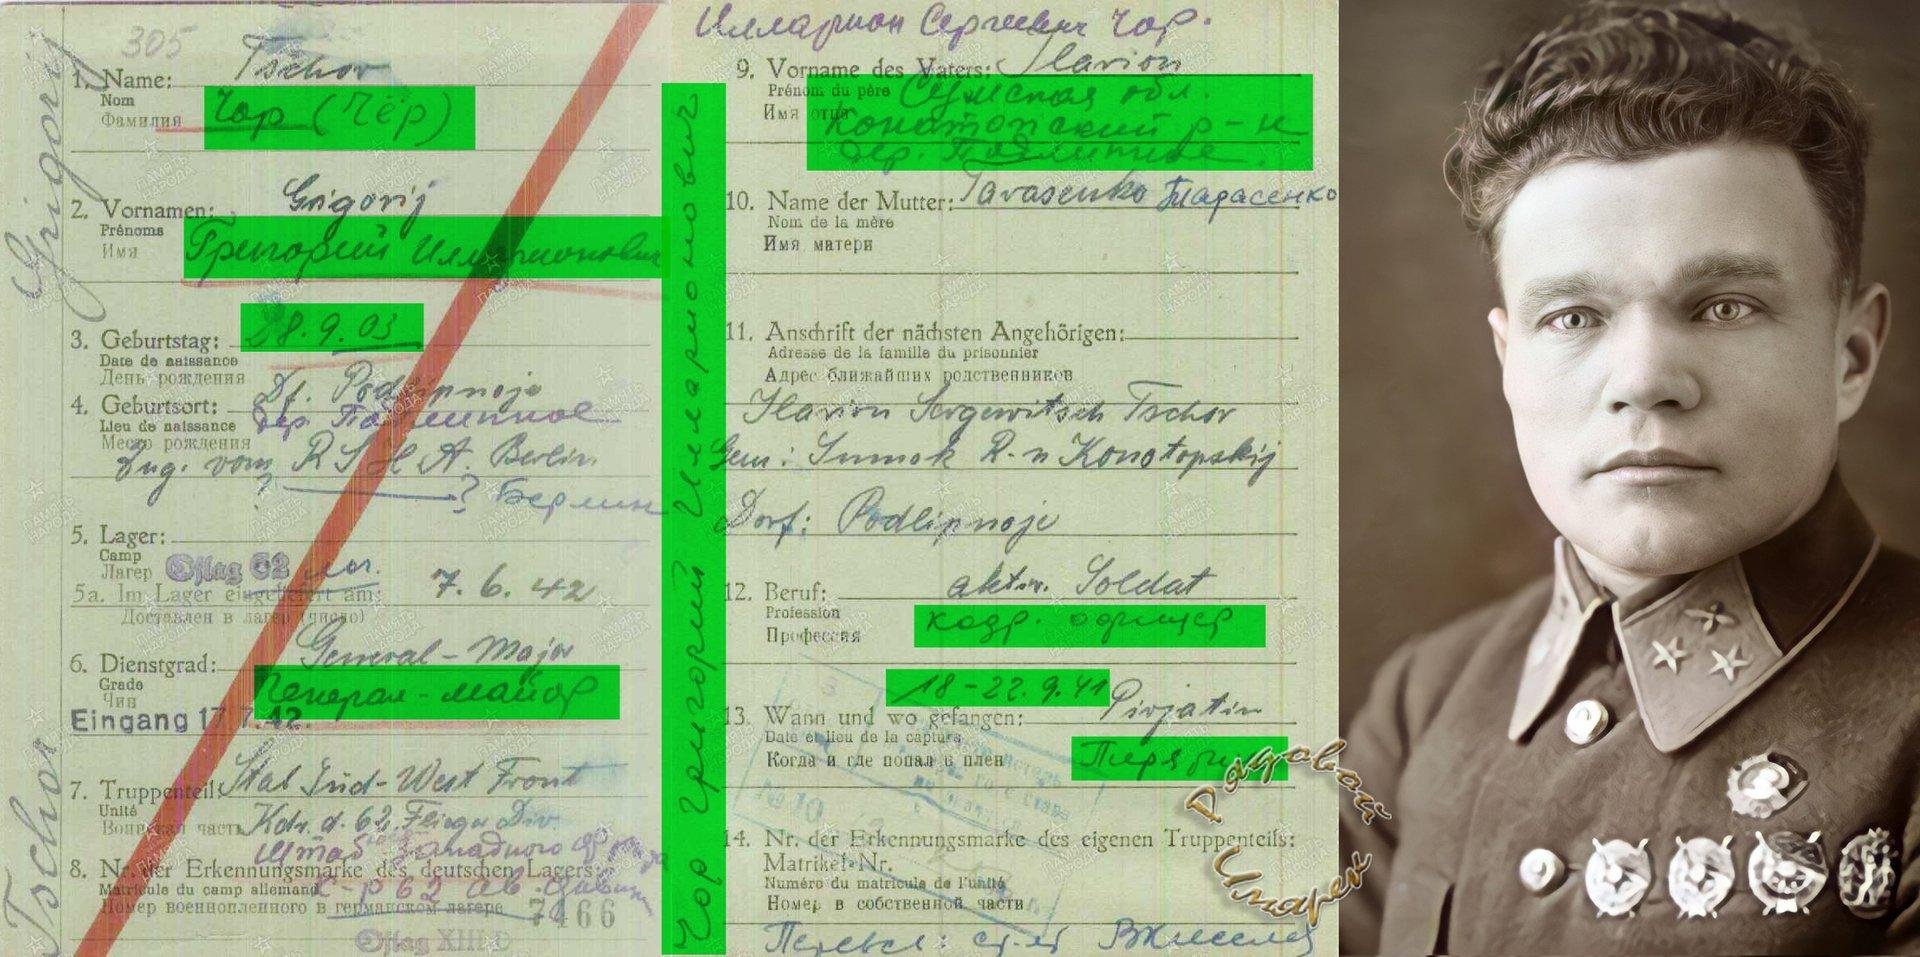 305
Grigorij
Tschor
1. Name: Tschor
Nom
Фамилия Чор (Чёр)
2. Vornamen: Grigorij
Prénoms
Имя Григорий Илларионович
3. Geburtstag: 28.9.03
Date de naissance
День рождения
4. Geburtsort: Df. Podlipnoje
Lieu de naissance дер. Подлипное
Место рождения
Zug. vom R S H A. Berlin
? ? Берлин
5. Lager:
Camp
Лагер Oflag 62
5a. Im Lager eingeliefert am: 7.6.42
Доставлен в лагер (число)
6. Dienstgrad: General-Major
Grade
Чин Генерал-майор
Eingang 17.7.42.
7. Truppenteil: Stab Süd-West Front
Unité
Воинская часть Kdr. d. 62. Flieger Div.
Штаб Западного фронта
8. Nr. der Erkennungsmarke des deutschen Lagers:
Matricule du camp allemand
Номер военнопленного в германском лагере 7466
Oflag XIII D
Чор Григорий Илларионович
Илларион Сергеевич Чор.
9. Vorname des Vaters: Ilarion
Prénom du père Сумская обл.
Имя отца Конотопский р-н
дер. Подлипное.
10. Name der Mutter: Tarasenko Тарасенко
Nom de la mère
Имя матери
11. Anschrift der nächsten Angehörigen:
Adresse de la famille du prisonnier
Адрес ближайших родственников
Ilarion Sergewitsch Tschor
Gem: Sumsk R-n Konotopskij
Dorf: Podlipnoje
12. Beruf: aktiv. Soldat
Profession
Профессия кадр. офицер
18-22.9.41
13. Wann und wo gefangen: Pirjatin
Date et lieu de la capture
Когда и где попал в плен Пирятин
№ 10
14. Nr. der Erkennungsmarke des eigenen Truppenteils:
Matrikel-Nr.
Numéro du matricule de l'unité
Номер в собственной части
Перевел:
ПАМЯТЬ НАРОДА